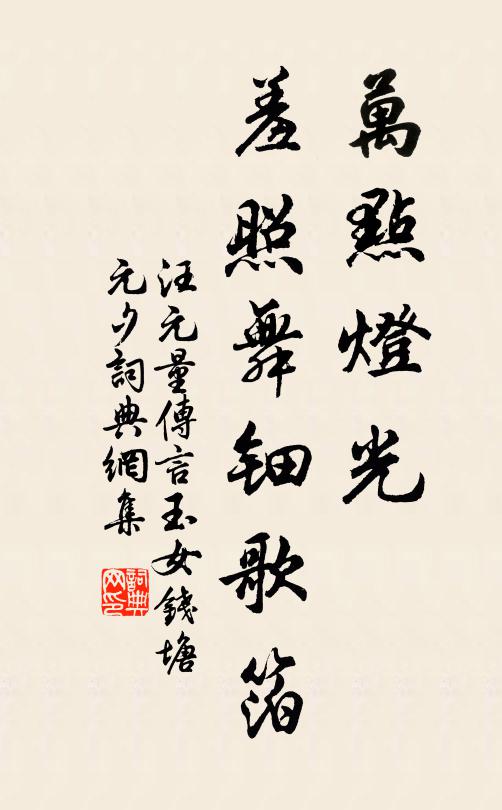 萬點燈光
羞照舞鈿歌箔
汪元量傳言玉女錢塘
元夕詞典網集
詞典
网印